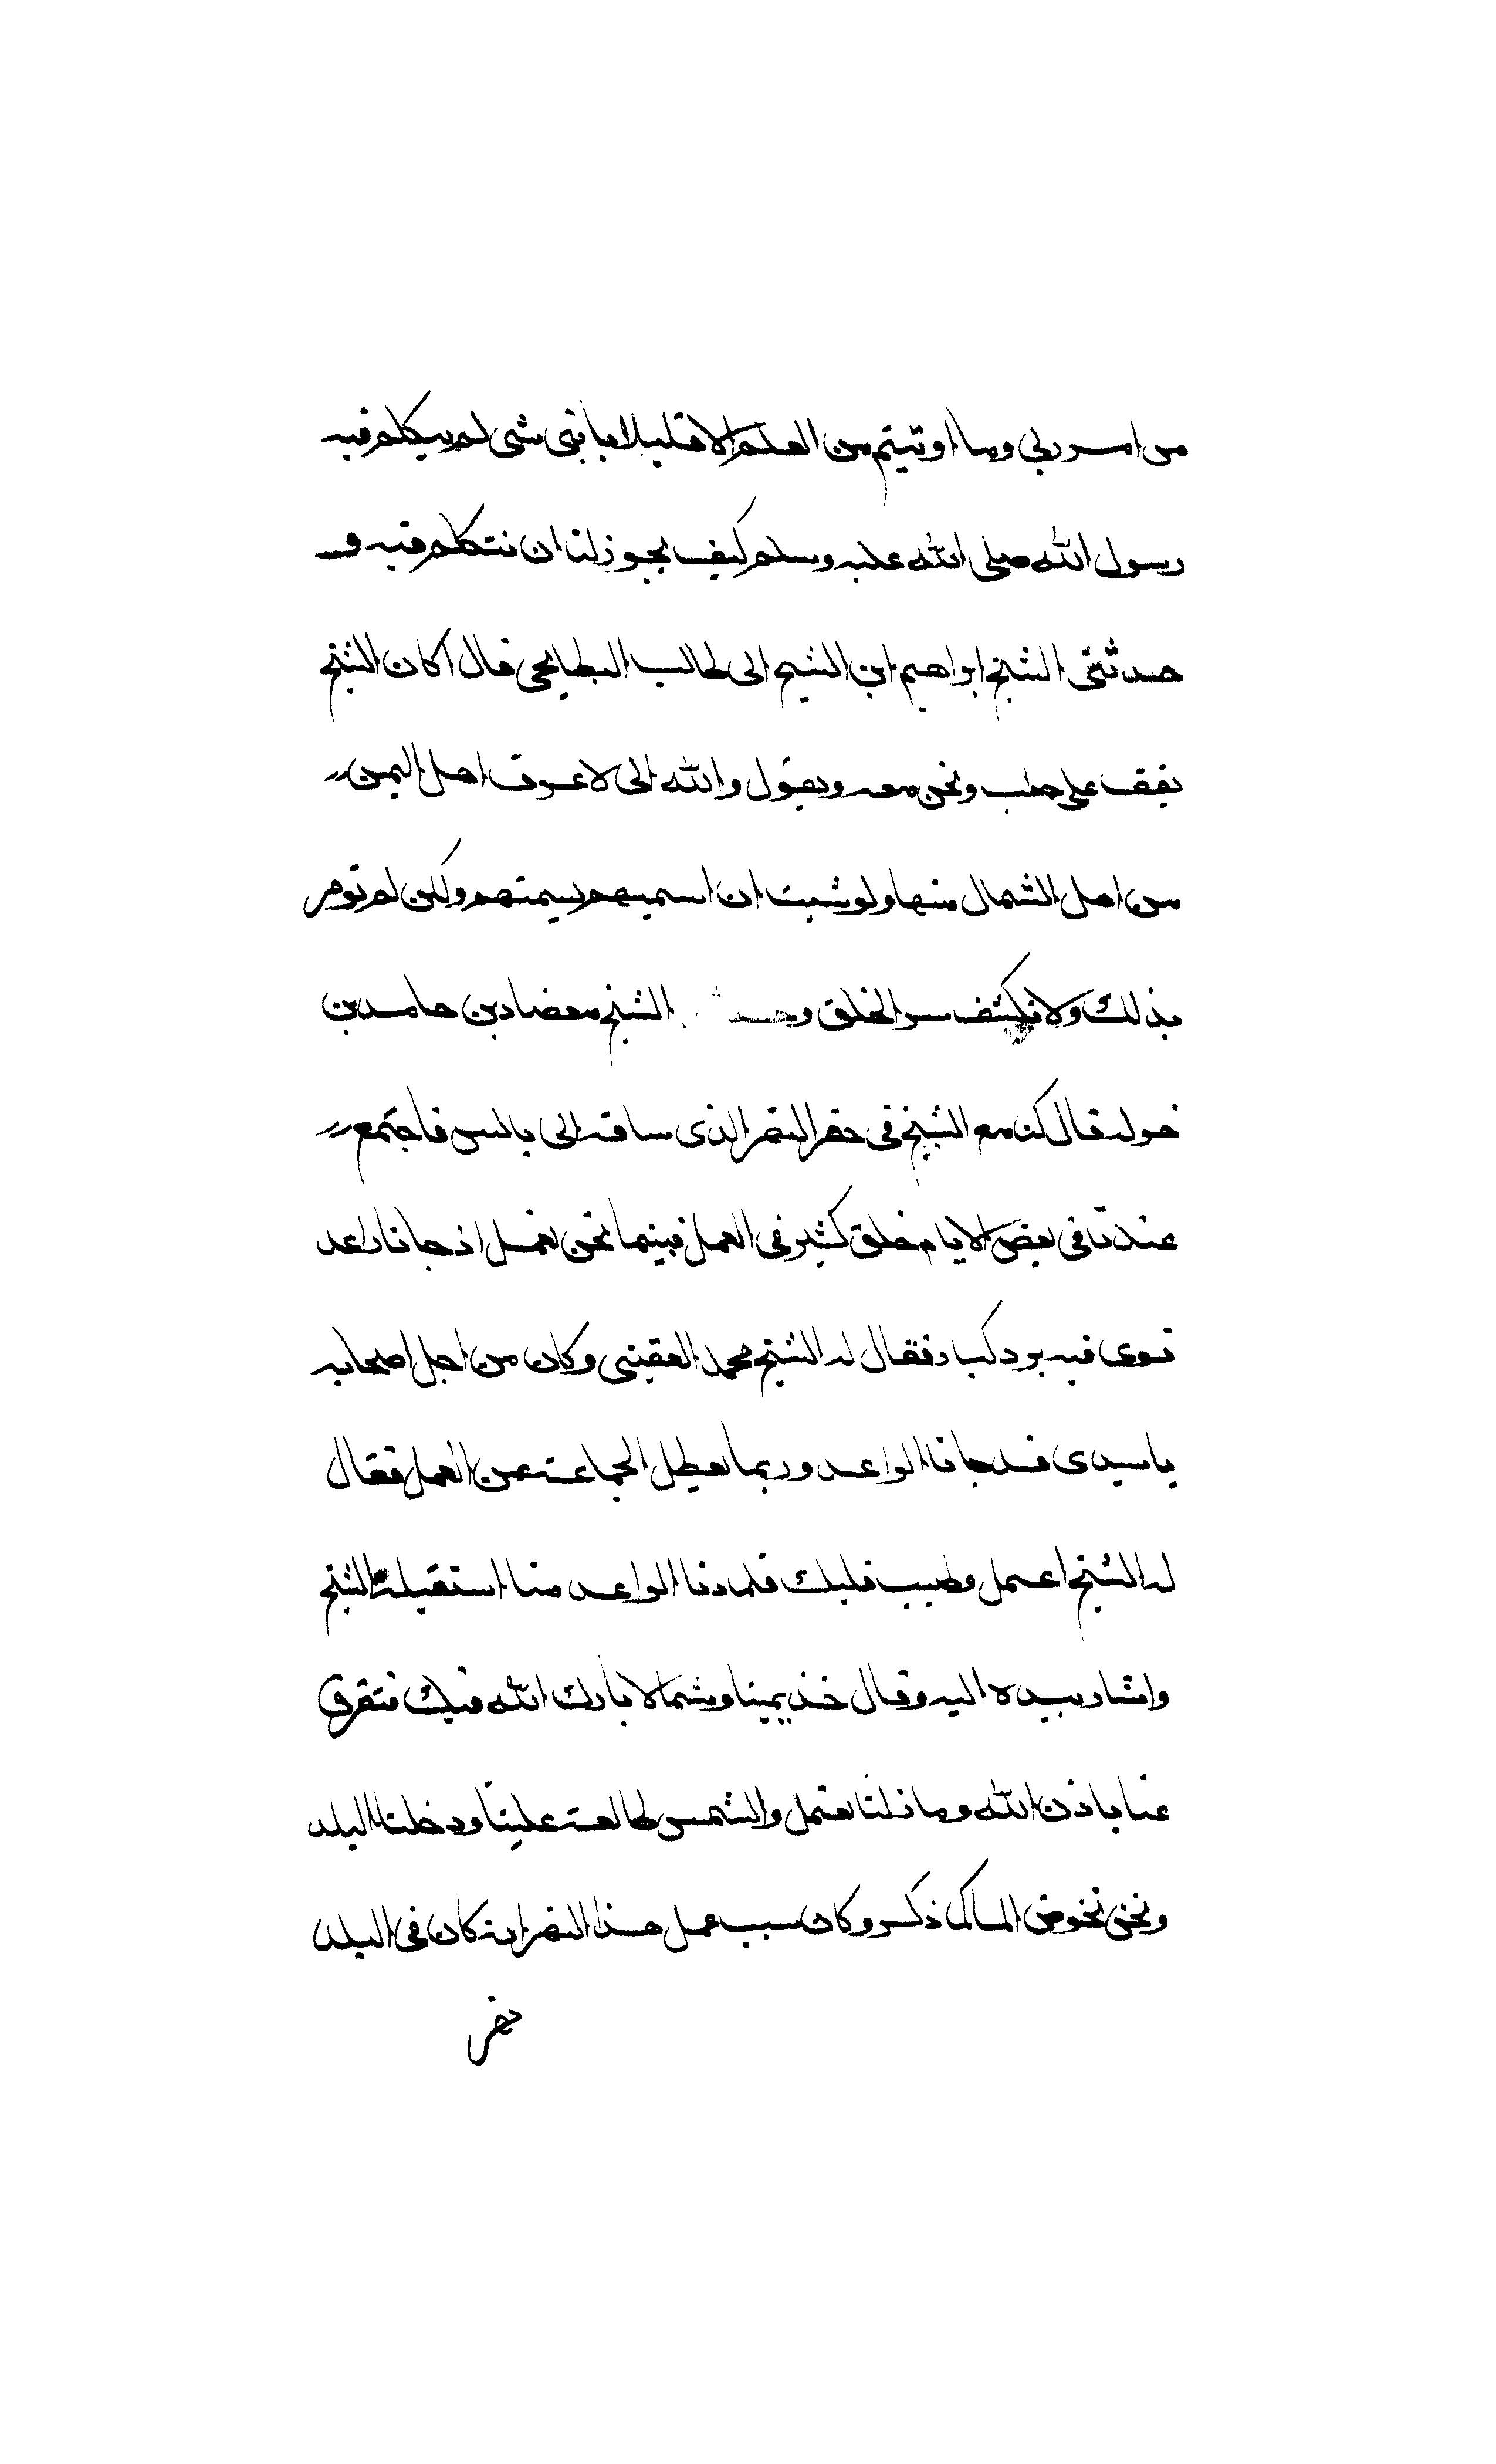 من امر ربي وما اوتيتم من العلم الا قليلا يا بني شي لم يتكلم فيه
رسول الله صلى الله عليه وسلم كيف يجوز لنا ان نتكلم فيه و
حدثني الشيخ ابراهيم ابن الشيخ ابي طالب البطايحي قال كان الشيخ
يقف على حلب ونحن معه ويقول والله اني لاعرف اهل اليمن
من اهل الشمال منها ولو شيت ان اسميهم لسميتهم ولكن لم نومر
بذلك ولا نكشف سر الخلق وحد الشيخ معضاد بن حامد بن
خوله قال كنا مع الشيخ في حفر النهر الذي ساقه الى بالس فاجتمع
عندنا في بعض الايام خلق كثير في العمل فبينما نحن نعمل اذ جانا راعد
قوي فيه برد كبار فقال له الشيخ محمد العقيبي وكان من اجل اصحابه
يا سيدي قد جانا الراعد وربما يعطل الجماعة عن العمل فقال
له الشيخ اعمل وطيب قلبك فلما دنا الراعد منا استقبله الشيخ
واشار بيده اليه وقال خذ يمينا وشمالا بارك الله فيك فتفرق
عنا باذن الله وما زلنا نعمل والشمس طالعة علينا ودخلنا البلد
ونحن نخوض الما كما ذكر وكان سبب عمل هذا النهر انه كان في البلد
حفر